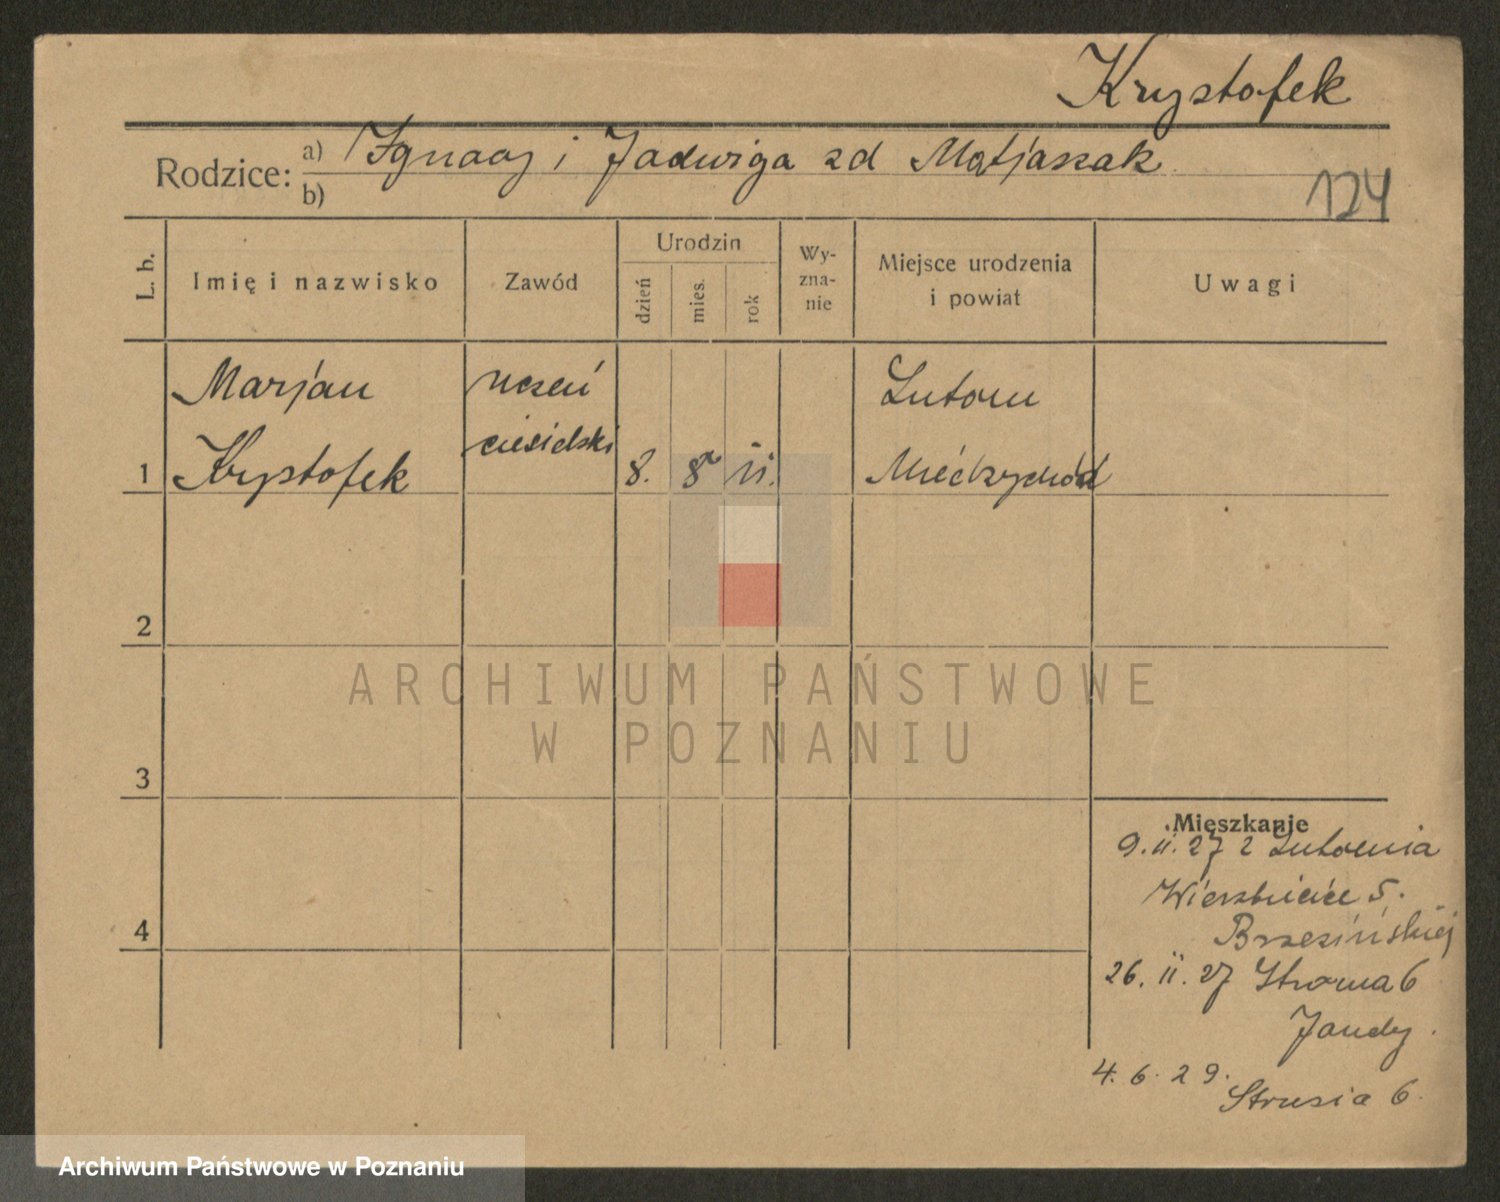 Krystofek
Rodzice: a) Ignacy i Jadwiga zd Matjaszak
b)
124
L. b.
Imię i nazwisko
Zawód
Urodzin
dzień
mies.
rok
Wy-
zna-
nie
Miejsce urodzenia
i powiat
Uwagi
Marjan
uczeń
Lutom
ciesielski
1 Krystofek
8. 8 11.
Międzychód
2
ARCHIWUM PAŃSTWOWE
W POZNANIU
3
Mieszkanie
9.II.27 z Lutomia
Wierzbięcice 5.
Brzezińskiej
4
26.II.27 Stroma 6
Jandy.
4.6.29.
Strusia 6.
Archiwum Państwowe w Poznaniu